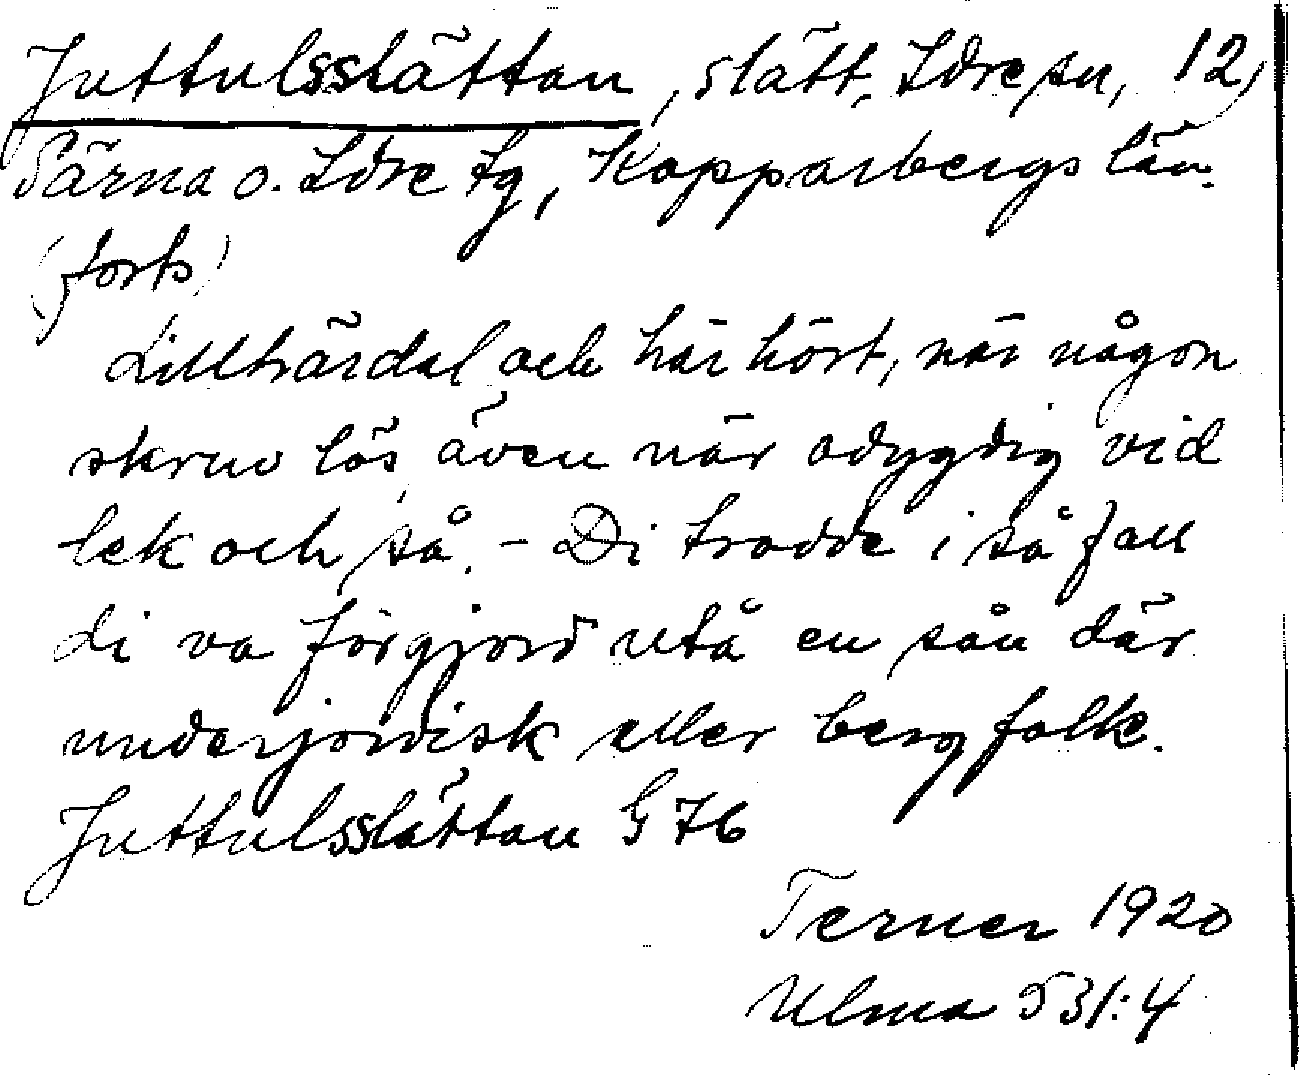 Juttulsslättan, slätt, Idre sn, 12)
Särna o. Idre tg, Kopparbergs län.
(forts)
Lillhärdal och här hört, när någon
skruv lös, även när odygdig vid
lek och så. - Di trodde i så fall
di va förgjord utå en sån där
underjordisk eller bergfolke.
Juttulsslättan G 76
Terner 1920
Ulma 531:4